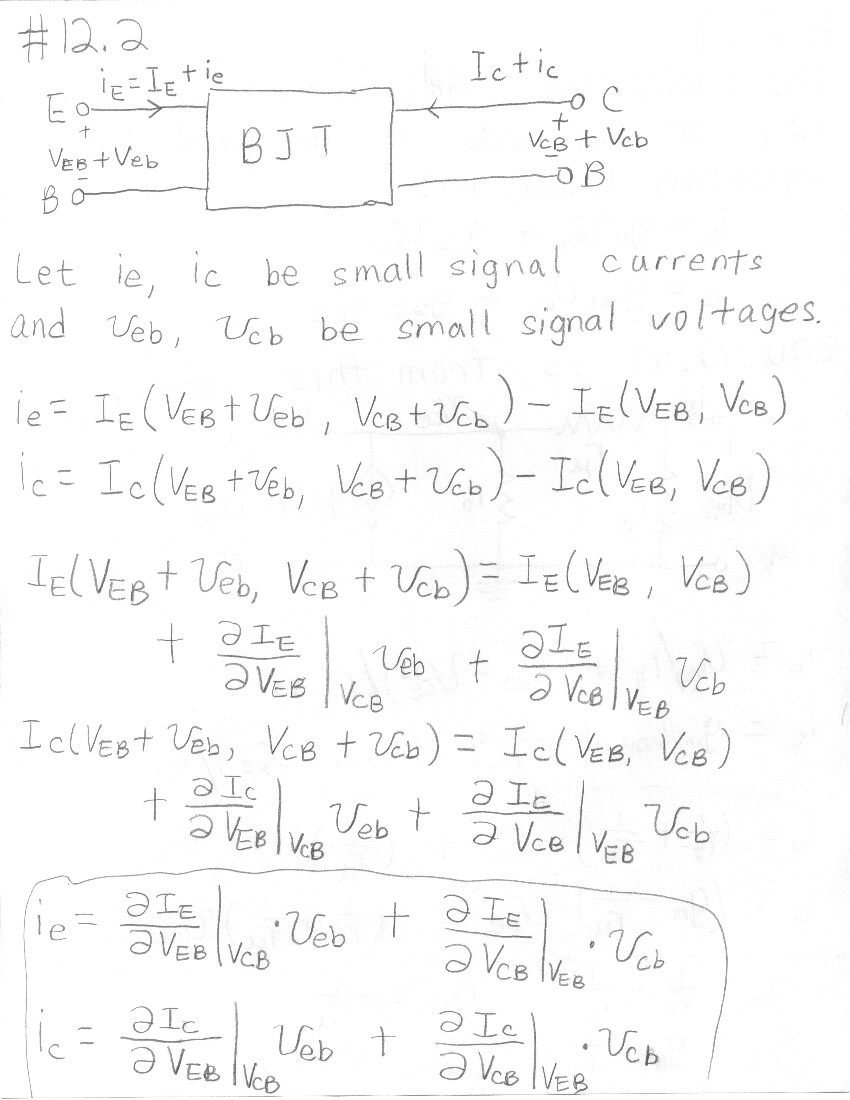 #12.2
i_E = I_E + i_e
I_C + i_c
E
C
+
+
BJT
V_EB + V_eb
V_CB + V_cb
-
-
B
B
Let ie, ic be small signal currents
and v_eb, v_cb be small signal voltages.
i_e = I_E(V_EB + v_eb, V_CB + v_cb) - I_E(V_EB, V_CB)
i_c = I_C(V_EB + v_eb, V_CB + v_cb) - I_C(V_EB, V_CB)
I_E(V_EB + v_eb, V_CB + v_cb) = I_E(V_EB, V_CB)
+ ∂I_E/∂V_EB |_V_CB v_eb + ∂I_E/∂V_CB |_V_EB v_cb
I_C(V_EB + v_eb, V_CB + v_cb) = I_C(V_EB, V_CB)
+ ∂I_C/∂V_EB |_V_CB v_eb + ∂I_C/∂V_CB |_V_EB v_cb
i_e = ∂I_E/∂V_EB |_V_CB · v_eb + ∂I_E/∂V_CB |_V_EB · v_cb
i_c = ∂I_C/∂V_EB |_V_CB v_eb + ∂I_C/∂V_CB |_V_EB · v_cb